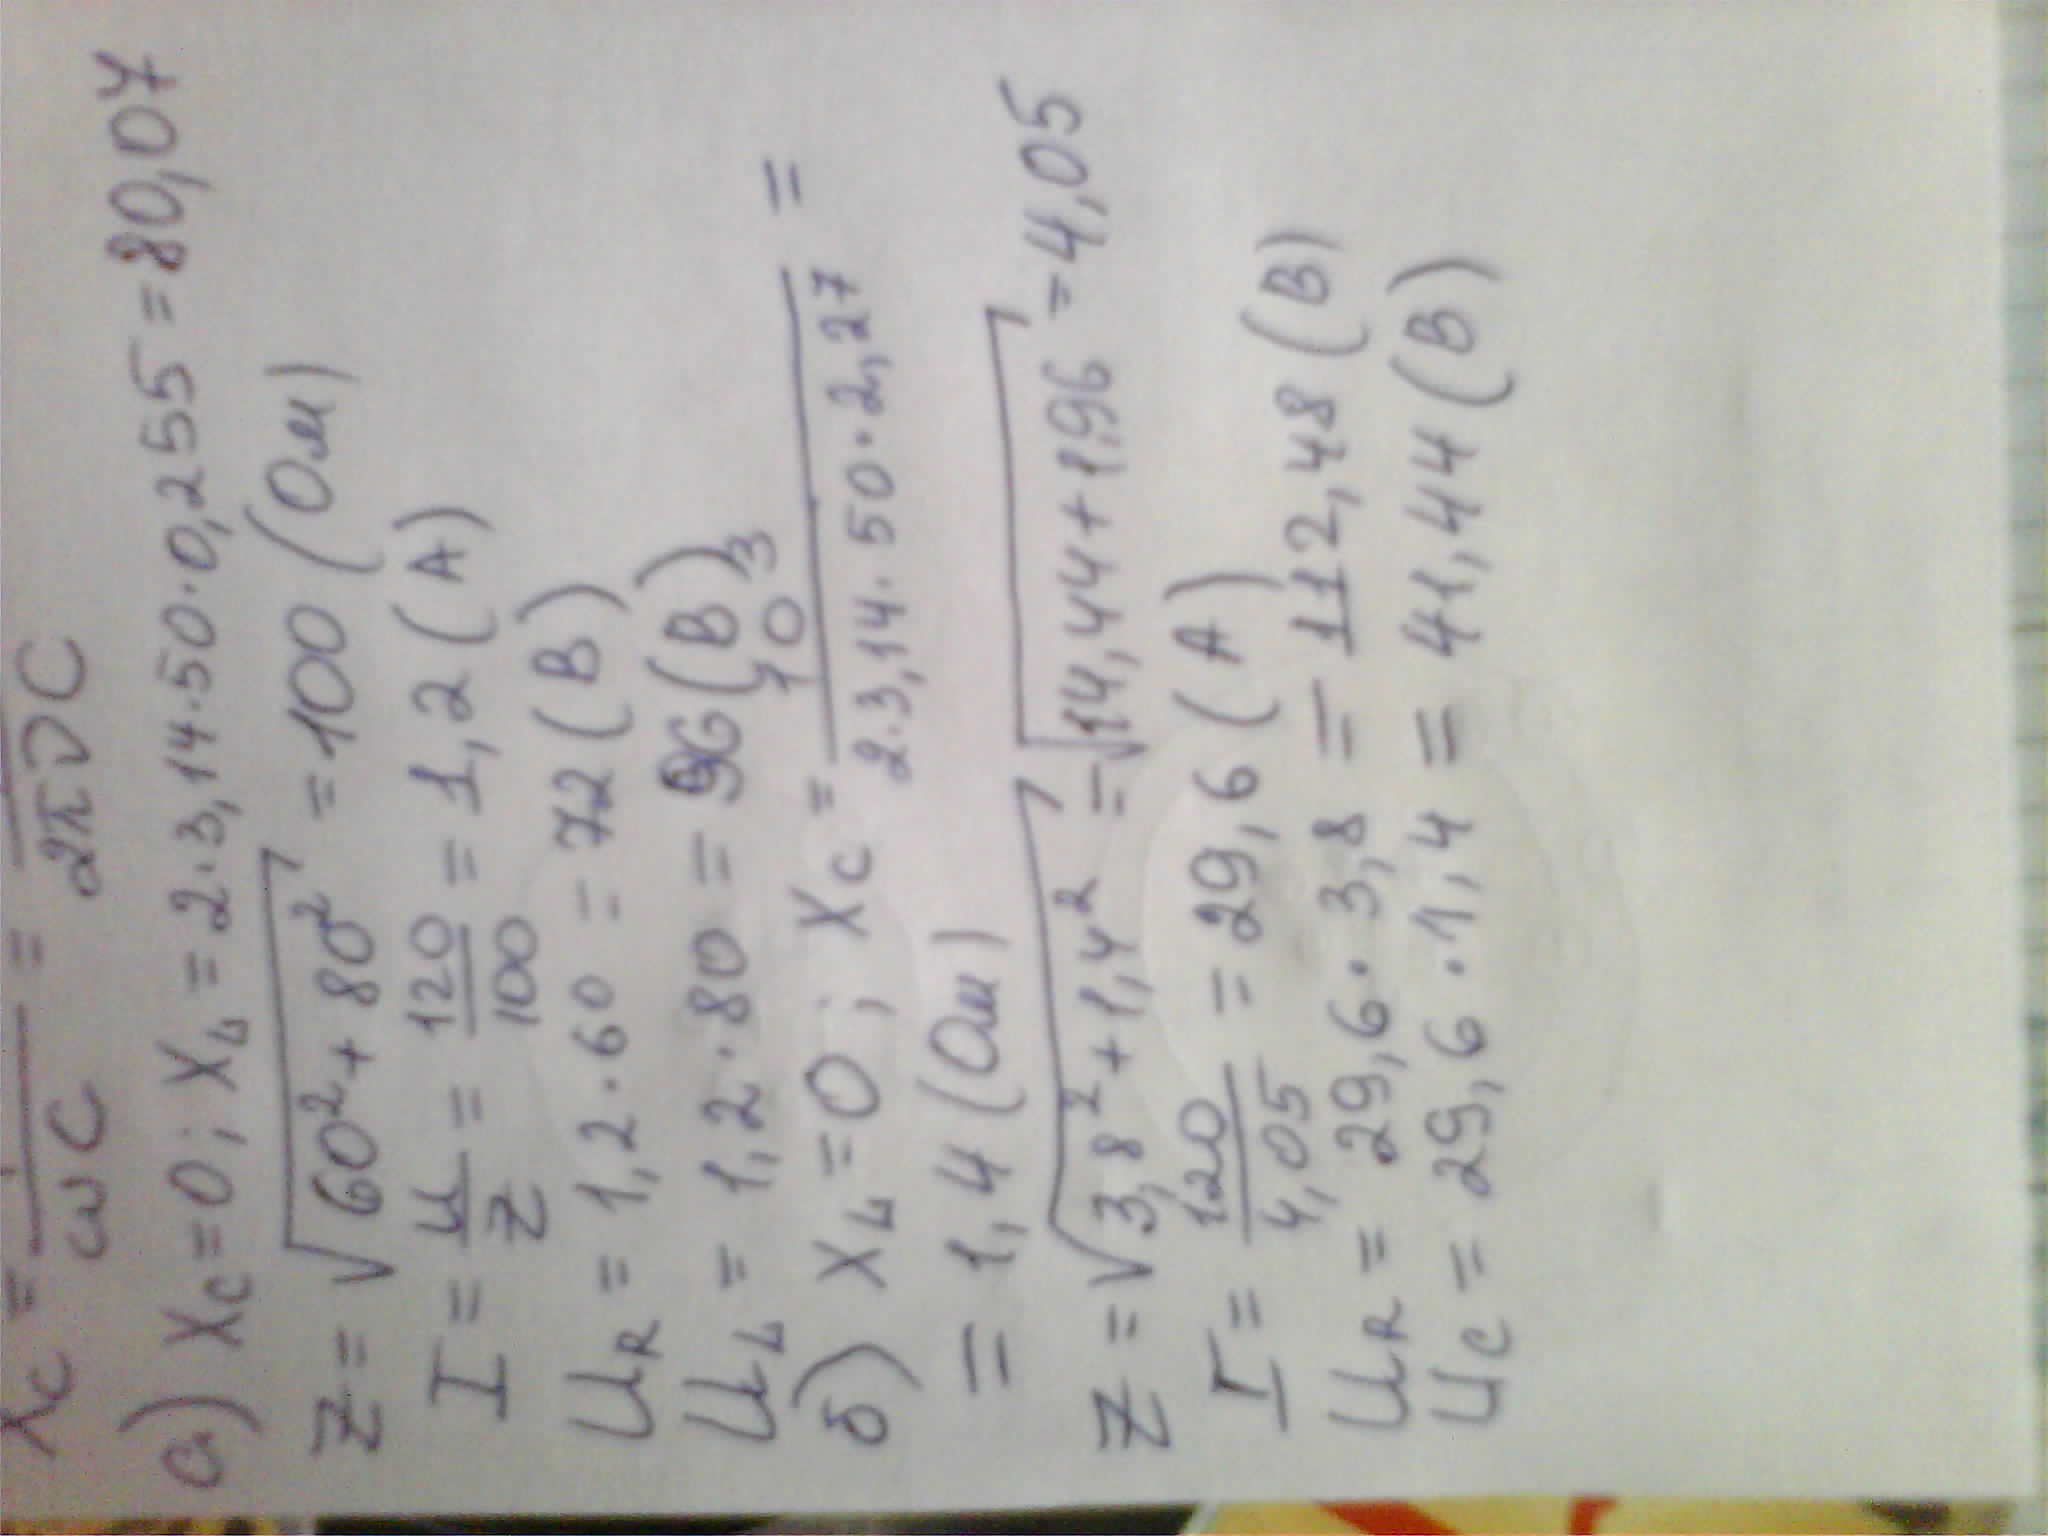 Xc = 1/ωC = 1/2πνC
а) Xc = 0; XL = 2·3,14·50·0,255 = 80,07
Z = √60² + 80² = 100 (Ом)
I = U/Z = 120/100 = 1,2 (A)
UR = 1,2·60 = 72 (В)
UL = 1,2·80 = 96 (В)
б) XL = 0; Xc = 10³/2·3,14·50·2,27 =
= 1,4 (Ом)
Z = √3,8² + 1,4² = √14,44 + 1,96 = 4,05
I = 120/4,05 = 29,6 (A)
UR = 29,6·3,8 = 112,48 (В)
Uc = 29,6·1,4 = 41,44 (В)